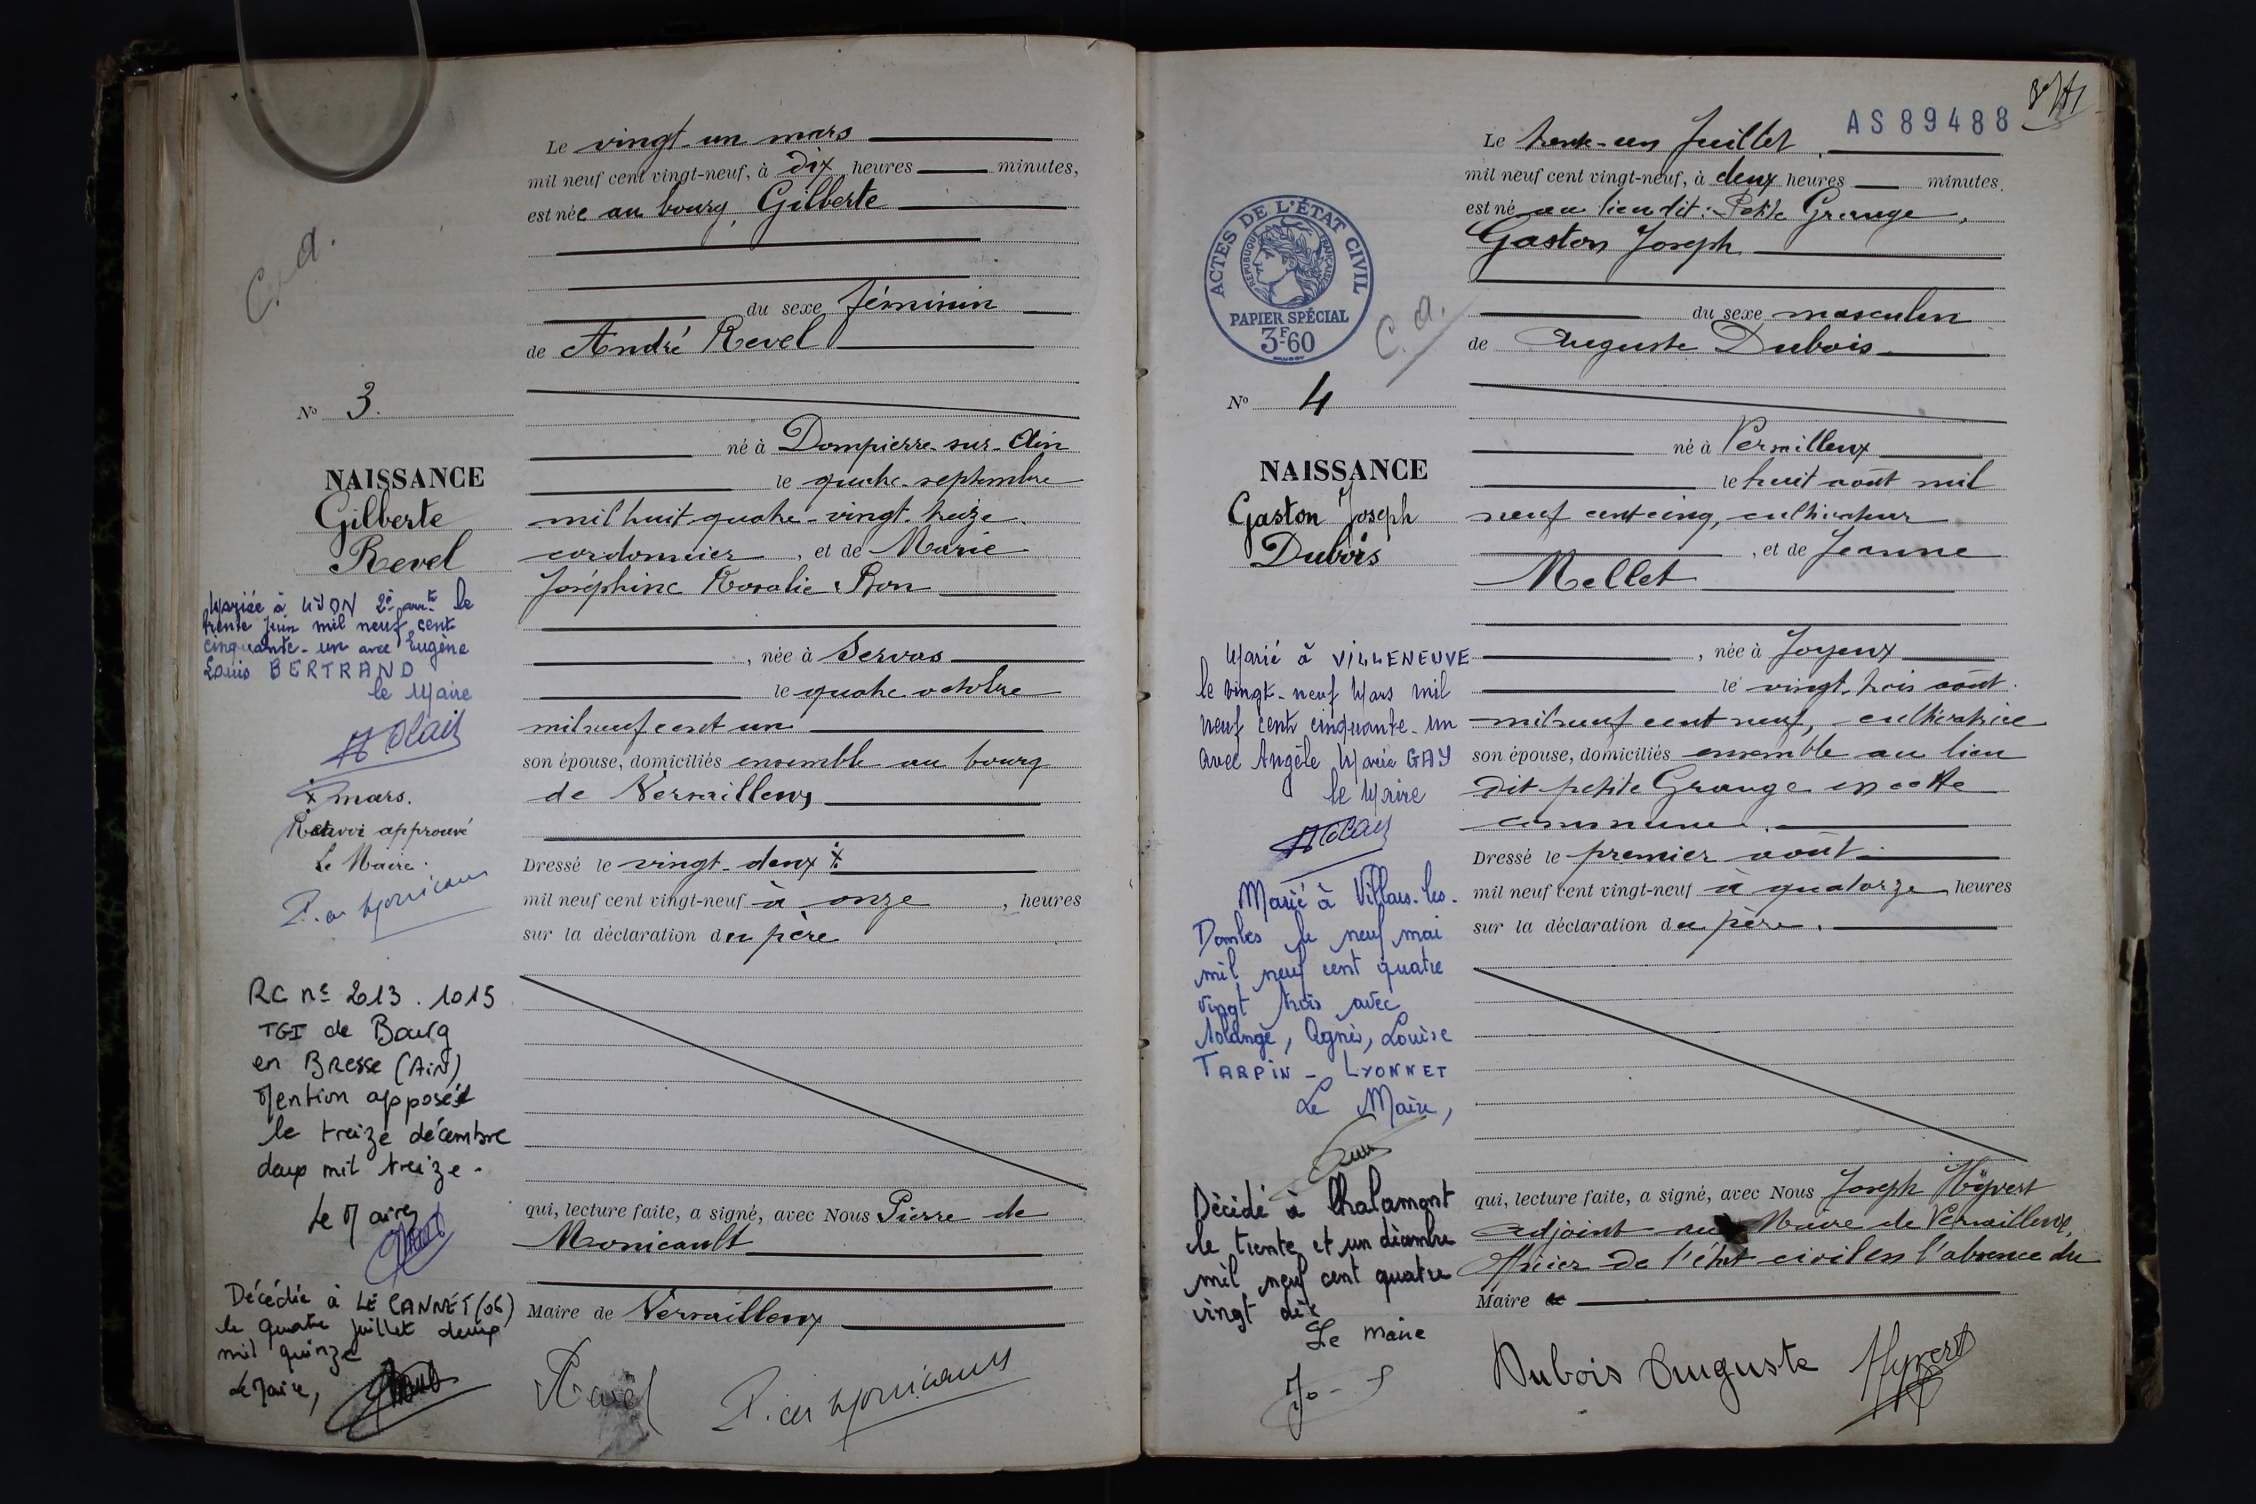 Le vingt-un mars
mil neuf cent vingt-neuf, à dix heures minutes,
est née au bourg, Gilberte
du sexe féminin
de André Revel
C. a.
N° 3.
NAISSANCE
Gilberte
Revel
né à Dompierre-sur-Ain
le quatre septembre
mil huit quatre-vingt-treize
cordonnier, et de Marie
Joséphine Rosalie Ron
, née à Servas
le quatre octobre
mil neuf cent un
son épouse, domiciliés ensemble au bourg
de Versailleux
Dressé le vingt-deux X
mil neuf cent vingt-neuf à onze, heures
sur la déclaration du père
qui, lecture faite, a signé, avec Nous Pierre de
Monicault
Maire de Versailleux
Revel P. de Monicault
Mariée à LYON 2è arrt le
trente juin mil neuf cent
cinquante-un avec Eugène
Louis BERTRAND
le Maire
X mars.
Renvoi approuvé
Le Maire.
P. de Monicault
RC n° 213.1015
TGI de Bourg
en Bresse (Ain)
Mention apposée
le treize décembre
deux mil treize.
Le Maire
Décédée à LE CANNET (06)
le quatre juillet deux
mil quinze
Le Maire,
AS 89488
Le trente-un Juillet
mil neuf cent vingt-neuf, à deux heures minutes,
est né au lieu dit: Petite Grange,
Gaston Joseph
du sexe masculin
de Auguste Dubois
ACTES DE L'ÉTAT CIVIL
RÉPUBLIQUE FRANÇAISE
PAPIER SPÉCIAL
3F60
C. a.
N° 4
NAISSANCE
Gaston Joseph
Dubois
né à Versailleux
le huit août mil
neuf cent cinq, cultivateur
, et de Jeanne
Mellet
, née à Joyeux
le vingt-trois août
mil neuf cent neuf, cultivatrice
son épouse, domiciliés ensemble au lieu
dit petite Grange en cette
commune.
Dressé le premier août
mil neuf cent vingt-neuf à quatorze heures
sur la déclaration du père.
qui, lecture faite, a signé, avec Nous Joseph Hyvert
adjoint au Maire de Versailleux,
officier de l'état civil en l'absence du
Maire de
Dubois Auguste Hyvert
Marié à VILLENEUVE
le vingt-neuf Mars mil
neuf cent cinquante-un
avec Angèle Marie GAY
le Maire
Marié à Villars-les-
Dombes le neuf mai
mil neuf cent quatre
vingt trois avec
Solange, Agnès, Louise
TARPIN - LYONNET
Le Maire,
Décédé à Chalamont
le trente et un décembre
mil neuf cent quatre
vingt dix
Le maire